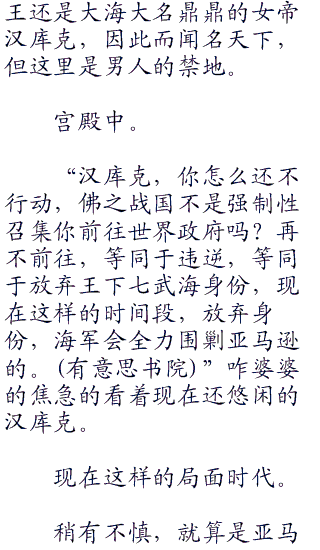 王还是大海大名鼎鼎的女帝
汉库克，因此而闻名天下，
但这里是男人的禁地。
宫殿中。
“汉库克，你怎么还不
行动，佛之战国不是强制性
召集你前往世界政府吗？再
不前往，等同于违逆，等同
于放弃王下七武海身份，现
在这样的时间段，放弃身
份，海军会全力围剿亚马逊
的。(有意思书院)”咋婆婆
的焦急的看着现在还悠闲的
汉库克。
现在这样的局面时代。
稍有不慎，就算是亚马